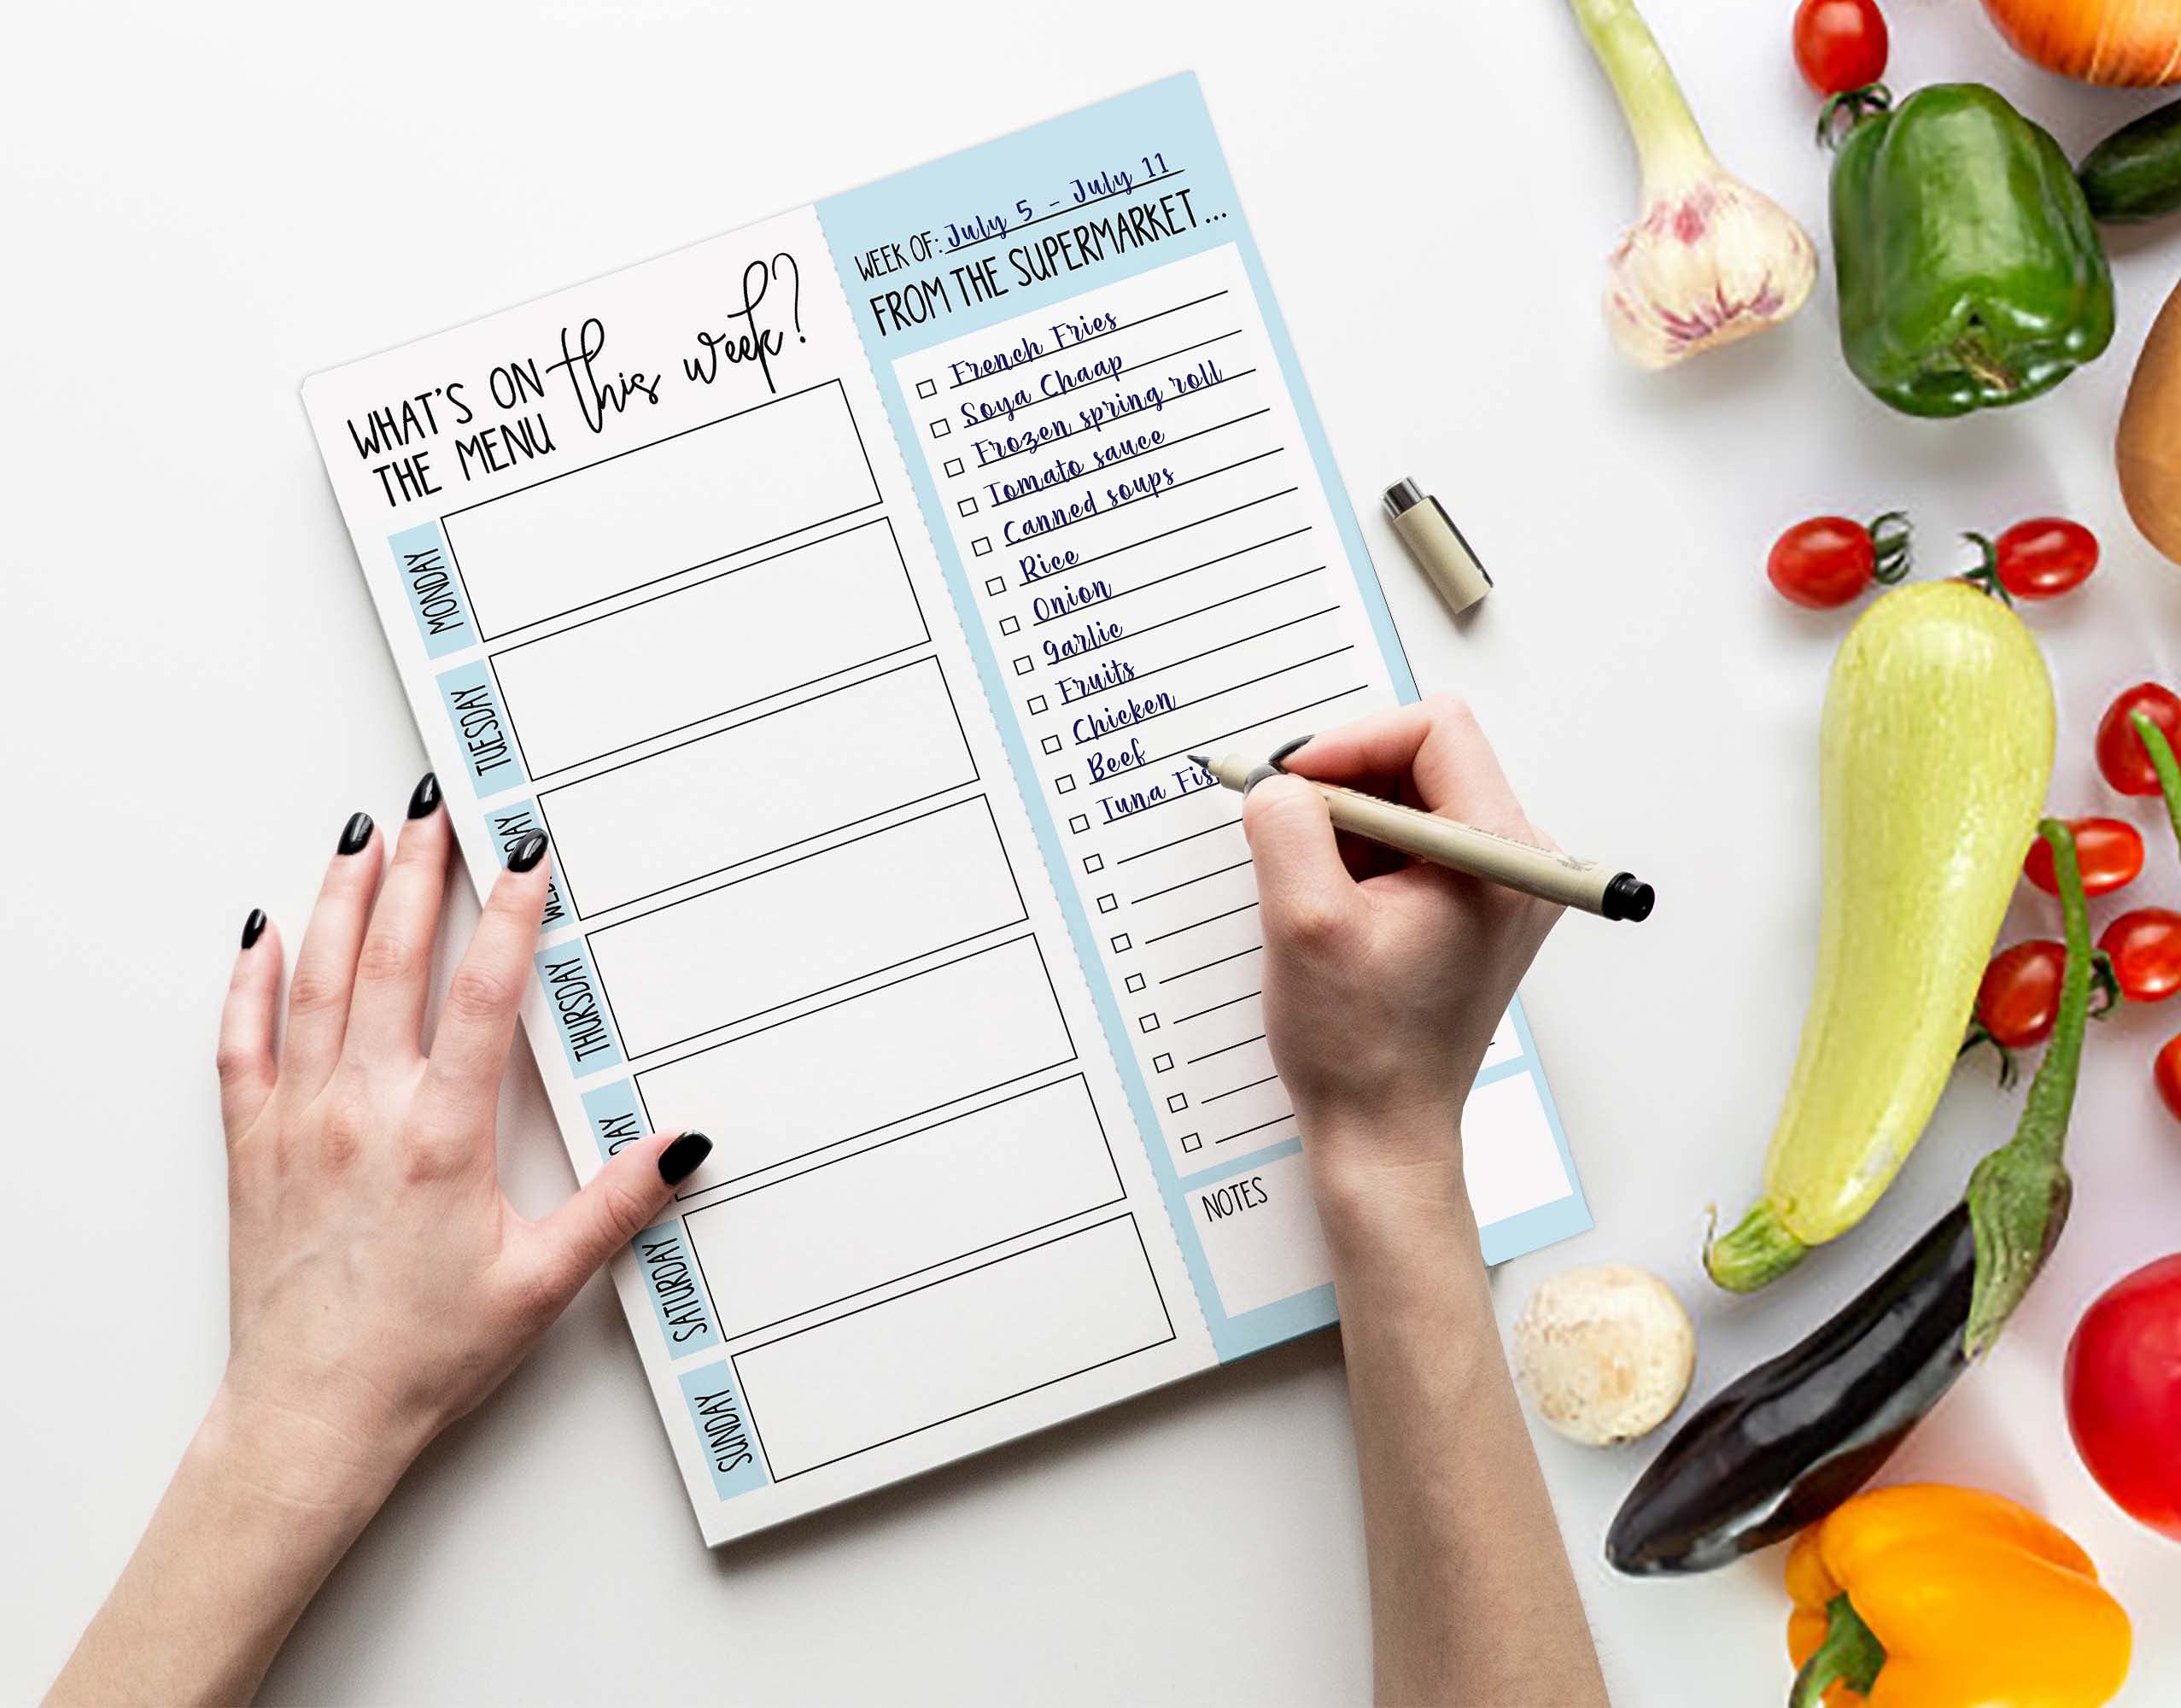 WHAT'S ON this week?
THE MENU
MONDAY
TUESDAY
THURSDAY
SATURDAY
SUNDAY
WEEK OF: July 5 - July 11
FROM THE SUPERMARKET...
French Fries
Soya Chaap
Frozen spring roll
Tomato sauce
Canned soups
Rice
Onion
garlic
Fruits
Chicken
Beef
Tuna Fis
NOTES